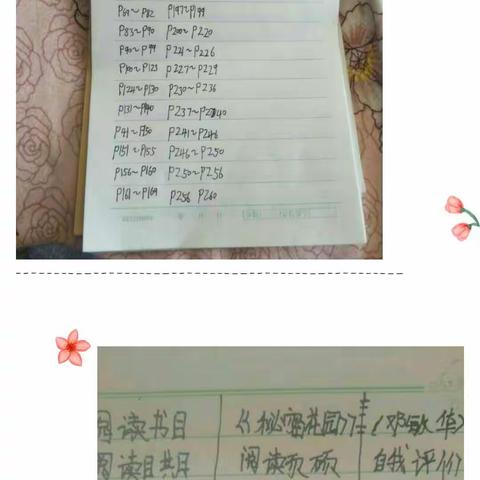 P69~P82 P197~P199
P83~P90 P200~P220
P90~P99 P221~P226
P100~P123 P227~P229
P124~P130 P230~P236
P131~P140 P237~P240
P41~P150 P241~P246
P151~P155 P246~P250
P156~P160 P250~P256
P161~P169 P256 P260
年 月 日
阅读书目 《秘密花园》 (邓敏华)
阅读日期 阅读页码 自我评价